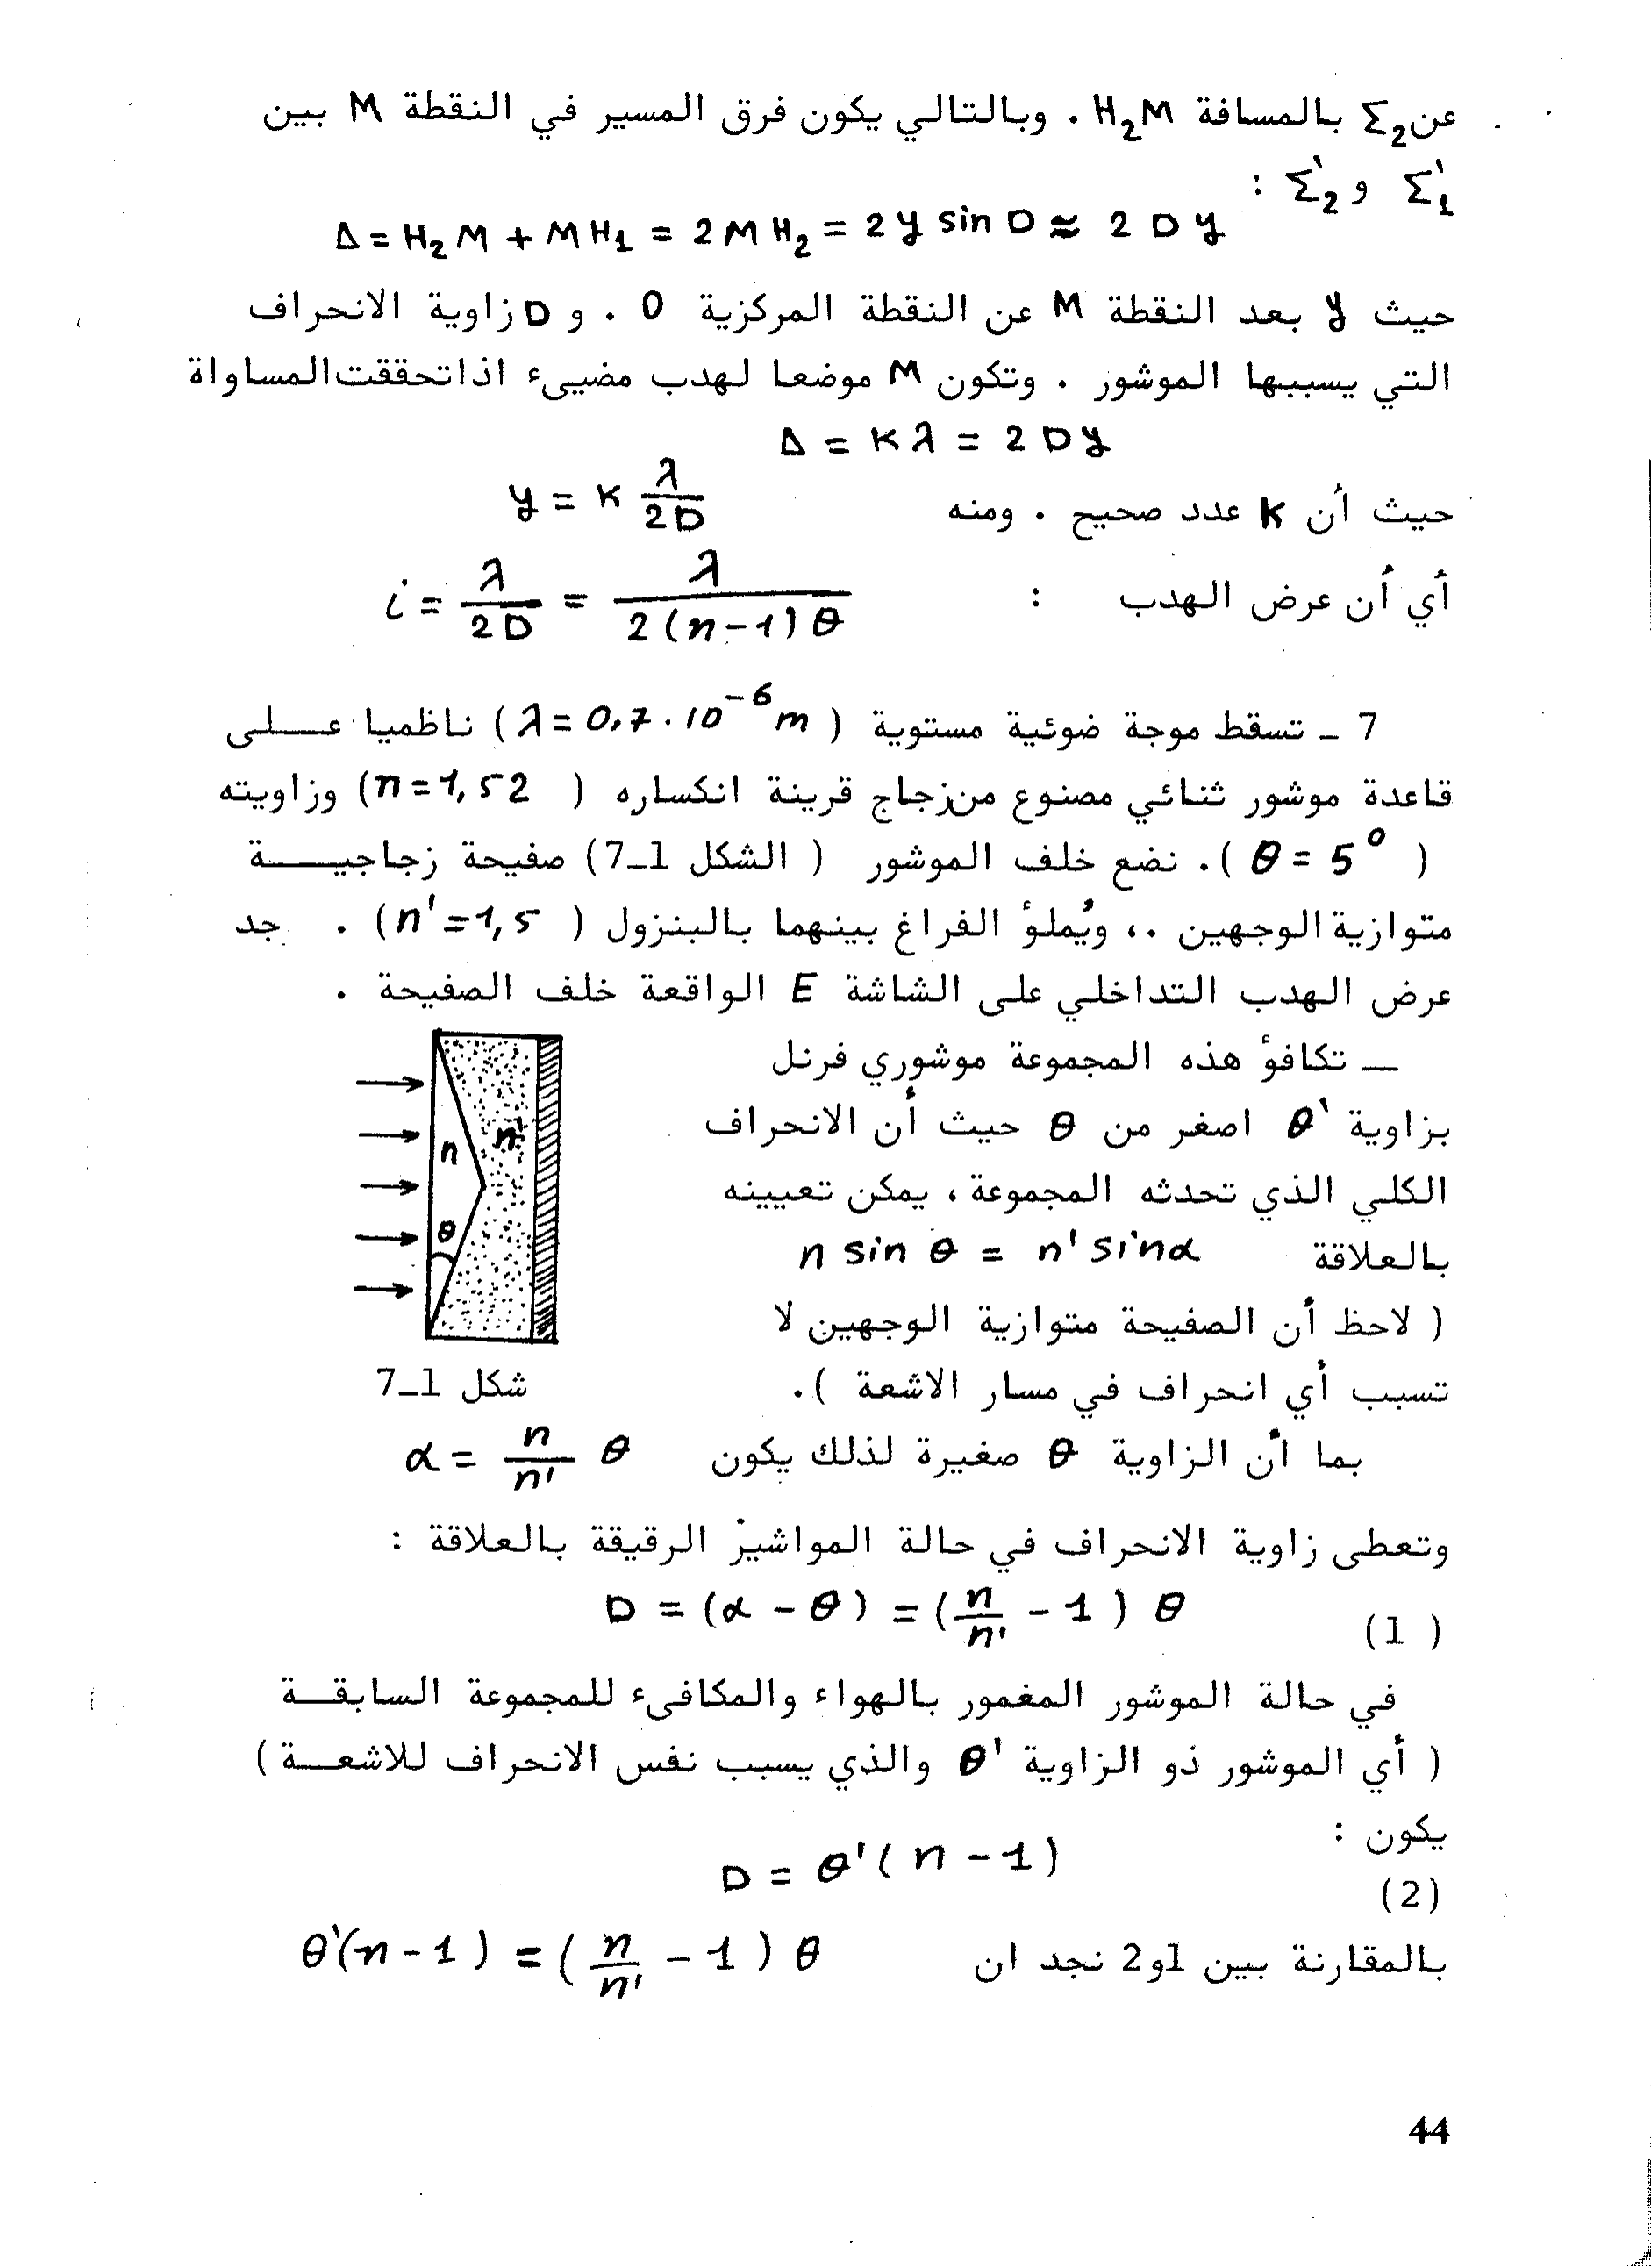 عن Σ₂ بالمسافة H₂M . وبالتالي يكون فرق المسير في النقطة M بين
Σ'₁ و Σ'₂ :
Δ = H₂M + MH₁ = 2MH₂ = 2y sin D ≈ 2Dy
حيث y بعد النقطة M عن النقطة المركزية O . و D زاوية الانحراف
التي يسببها الموشور . وتكون M موضعا لهدب مضييء اذا تحققت المساواة
Δ = Kλ = 2Dy
حيث أن K عدد صحيح . ومنه y = K λ/2D
أي أن عرض الهدب : i = λ/2D = λ/2(n-1)θ
7 ـ تسقط موجة ضوئية مستوية ( λ = 0,7 . 10⁻⁶ m ) ناظميا عـــلى
قاعدة موشور ثنائي مصنوع من زجاج قرينة انكساره ( n = 1,52 ) وزاويته
( θ = 5° ). نضع خلف الموشور ( الشكل 1ـ7 ) صفيحة زجاجيـــة
متوازية الوجهين .، ويُملؤ الفراغ بينهما بالبنزول ( n' = 1,5 ) . جد
عرض الهدب التداخلي على الشاشة E الواقعة خلف الصفيحة .
ـ تكافؤ هذه المجموعة موشوري فرنل
بزاوية θ' اصغر من θ حيث أن الانحراف
الكلي الذي تحدثه المجموعة ، يمكن تعيينه
بالعلاقة n sin θ = n' sin α
( لاحظ أن الصفيحة متوازية الوجهين لا
تسبب أي انحراف في مسار الاشعة ).
n
n'
θ
شكل 1ـ7
بما أن الزاوية θ صغيرة لذلك يكون α = n/n' θ
وتعطى زاوية الانحراف في حالة المواشير الرقيقة بالعلاقة :
( 1 ) D = (α - θ) = ( n/n' - 1 ) θ
في حالة الموشور المغمور بالهواء والمكافىء للمجموعة السابقـــة
( أي الموشور ذو الزاوية θ' والذي يسبب نفس الانحراف للاشعـــة )
يكون :
D = θ' ( n - 1 )
(2)
بالمقارنة بين 1 و2 نجد ان θ'(n - 1) = ( n/n' - 1 ) θ
44